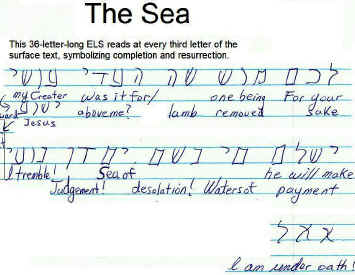 The Sea
This 36-letter-long ELS reads at every third letter of the
surface text, symbolizing completion and resurrection.
לכם מרש שה העדי עושי
my Creator was it for/ one being For your
ישוע above me? lamb removed sake
Jesus
ישלם מי נשם ים דן
I tremble! Sea of he will make
Judgement! desolation! Waters of payment
אאל
I am under oath!